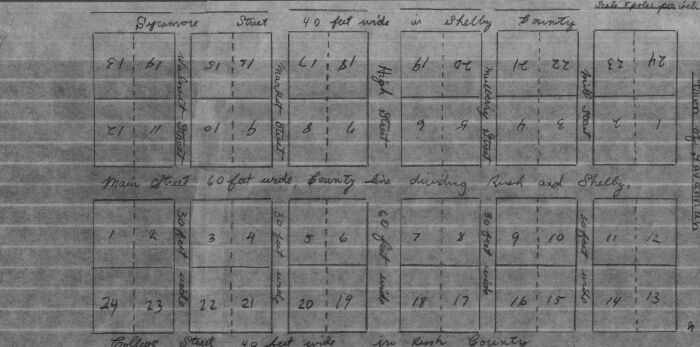 Scale 5 poles per inch
Sycamore Street 40 feet wide in Shelby County
13 14 15 16 17 18 19 20 21 22 23 24
Walnut Street
Market Street
High Street
Mulberry Street
Mill Street
12 11 10 9 8 7 6 5 4 3 2 1
Main Street 60 feet wide, County line dividing Rush and Shelby.
1 2 3 4 5 6 7 8 9 10 11 12
30 feet wide
30 feet wide
60 feet wide
30 feet wide
30 feet wide
24 23 22 21 20 19 18 17 16 15 14 13
College Street 40 feet wide in Rush County